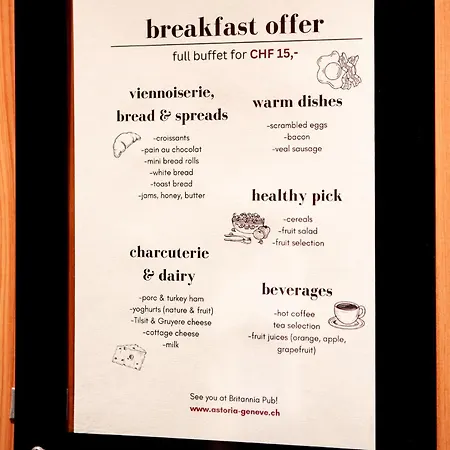 breakfast offer
full buffet for CHF 15,-
viennoiserie,
bread & spreads
-croissants
-pain au chocolat
-mini bread rolls
-white bread
-toast bread
-jams, honey, butter
charcuterie
& dairy
-porc & turkey ham
-yoghurts (nature & fruit)
-Tilsit & Gruyere cheese
-cottage cheese
-milk
warm dishes
-scrambled eggs
-bacon
-veal sausage
healthy pick
-cereals
-fruit salad
-fruit selection
beverages
-hot coffee
tea selection
-fruit juices (orange, apple,
grapefruit)
See you at Britannia Pub!
www.astoria-geneve.ch